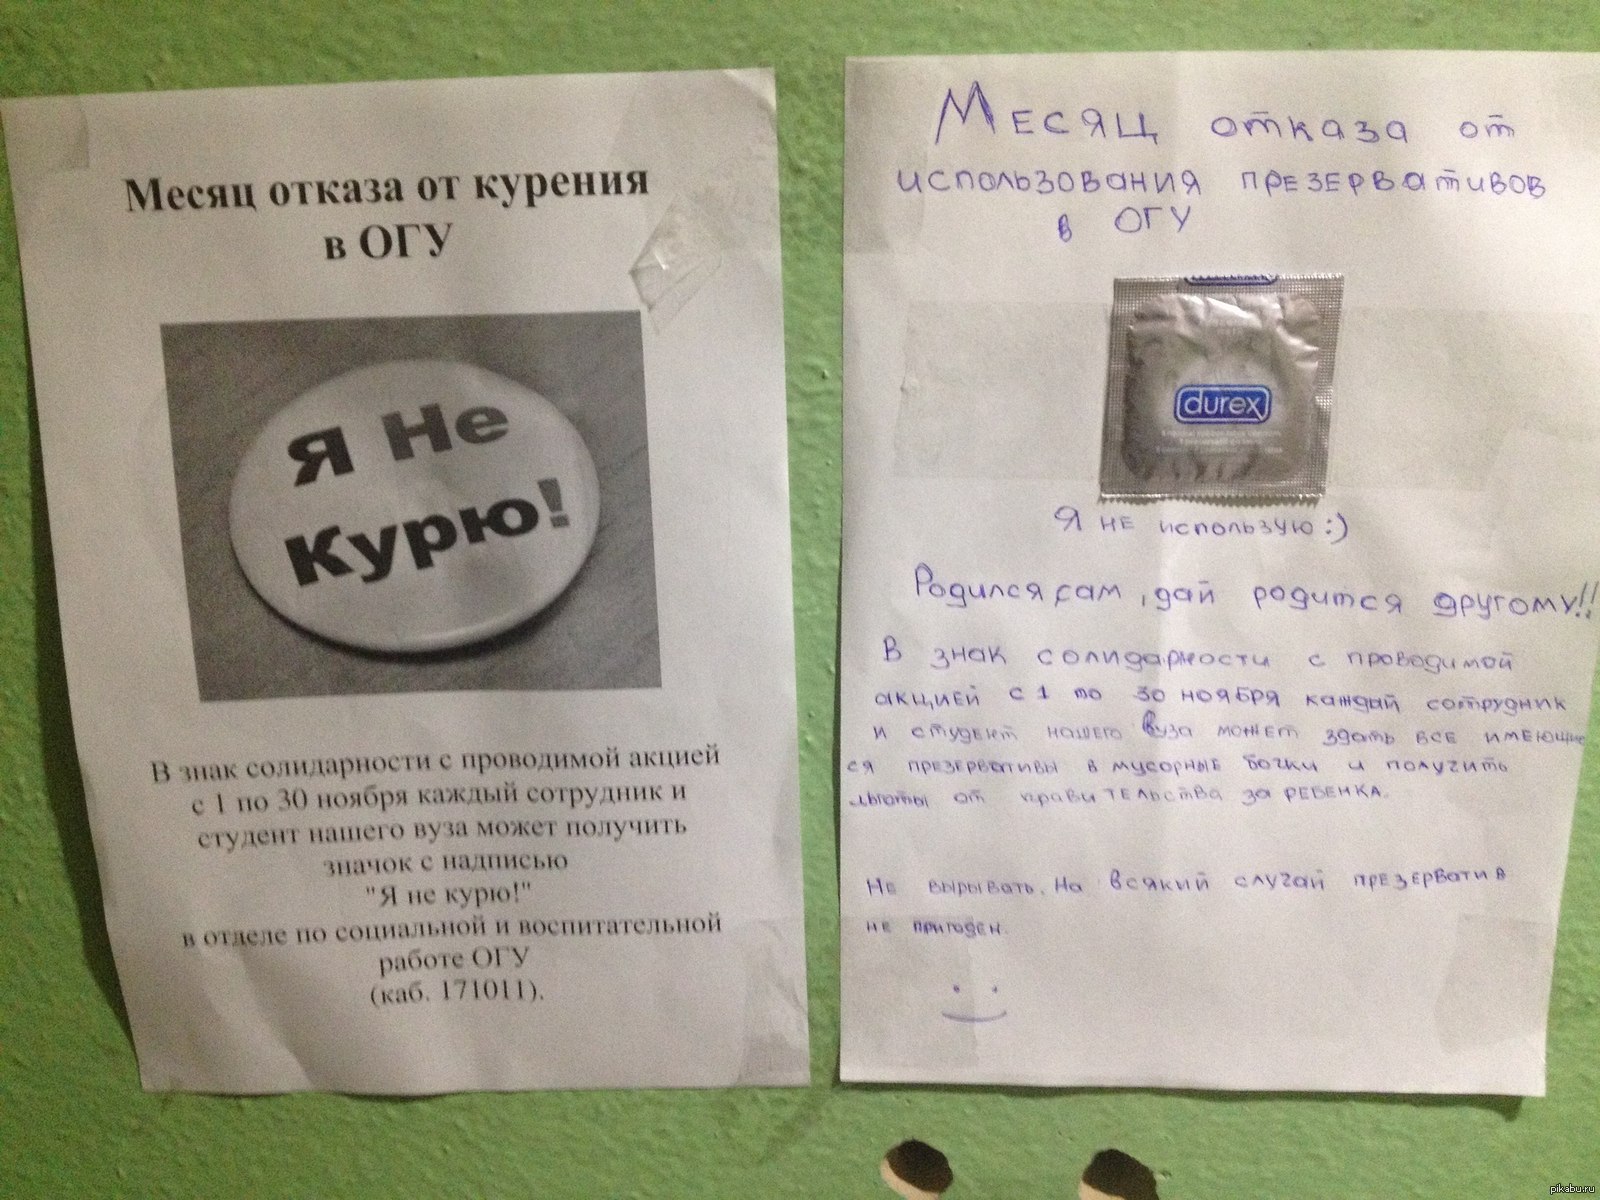 Месяц отказа от курения
в ОГУ
Я Не
Курю!
В знак солидарности с проводимой акцией
с 1 по 30 ноября каждый сотрудник и
студент нашего вуза может получить
значок с надписью
"Я не курю!"
в отделе по социальной и воспитательной
работе ОГУ
(каб. 171011).
Месяц отказа от
использования презервативов
в ОГУ
durex
Я не использую:)
Родился сам, дай родится другому!!
В знак солидарности с проводимой
акцией с 1 по 30 ноября каждый сотрудник
и студент нашего Вуза может здать все имеющие
ся презервативы в мусорные бочки и получить
льготы от правительства за ребенка.
Не вырывать. На всякий случай презерватив
не пригоден.
pikabu.ru